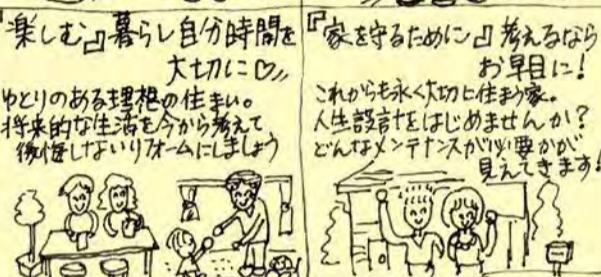 『楽しむ』暮らし自分時間を
大切に♡〃
ゆとりのある理想の住まい。
将来的な生活を今から考えて
後悔しないリフォームにしましょう
『家を守るために』考えるなら
お早目に!
これからも永く大切に住まう家。
人生設計をはじめませんか?
どんなメンテナンスが必要かが
見えてきます!